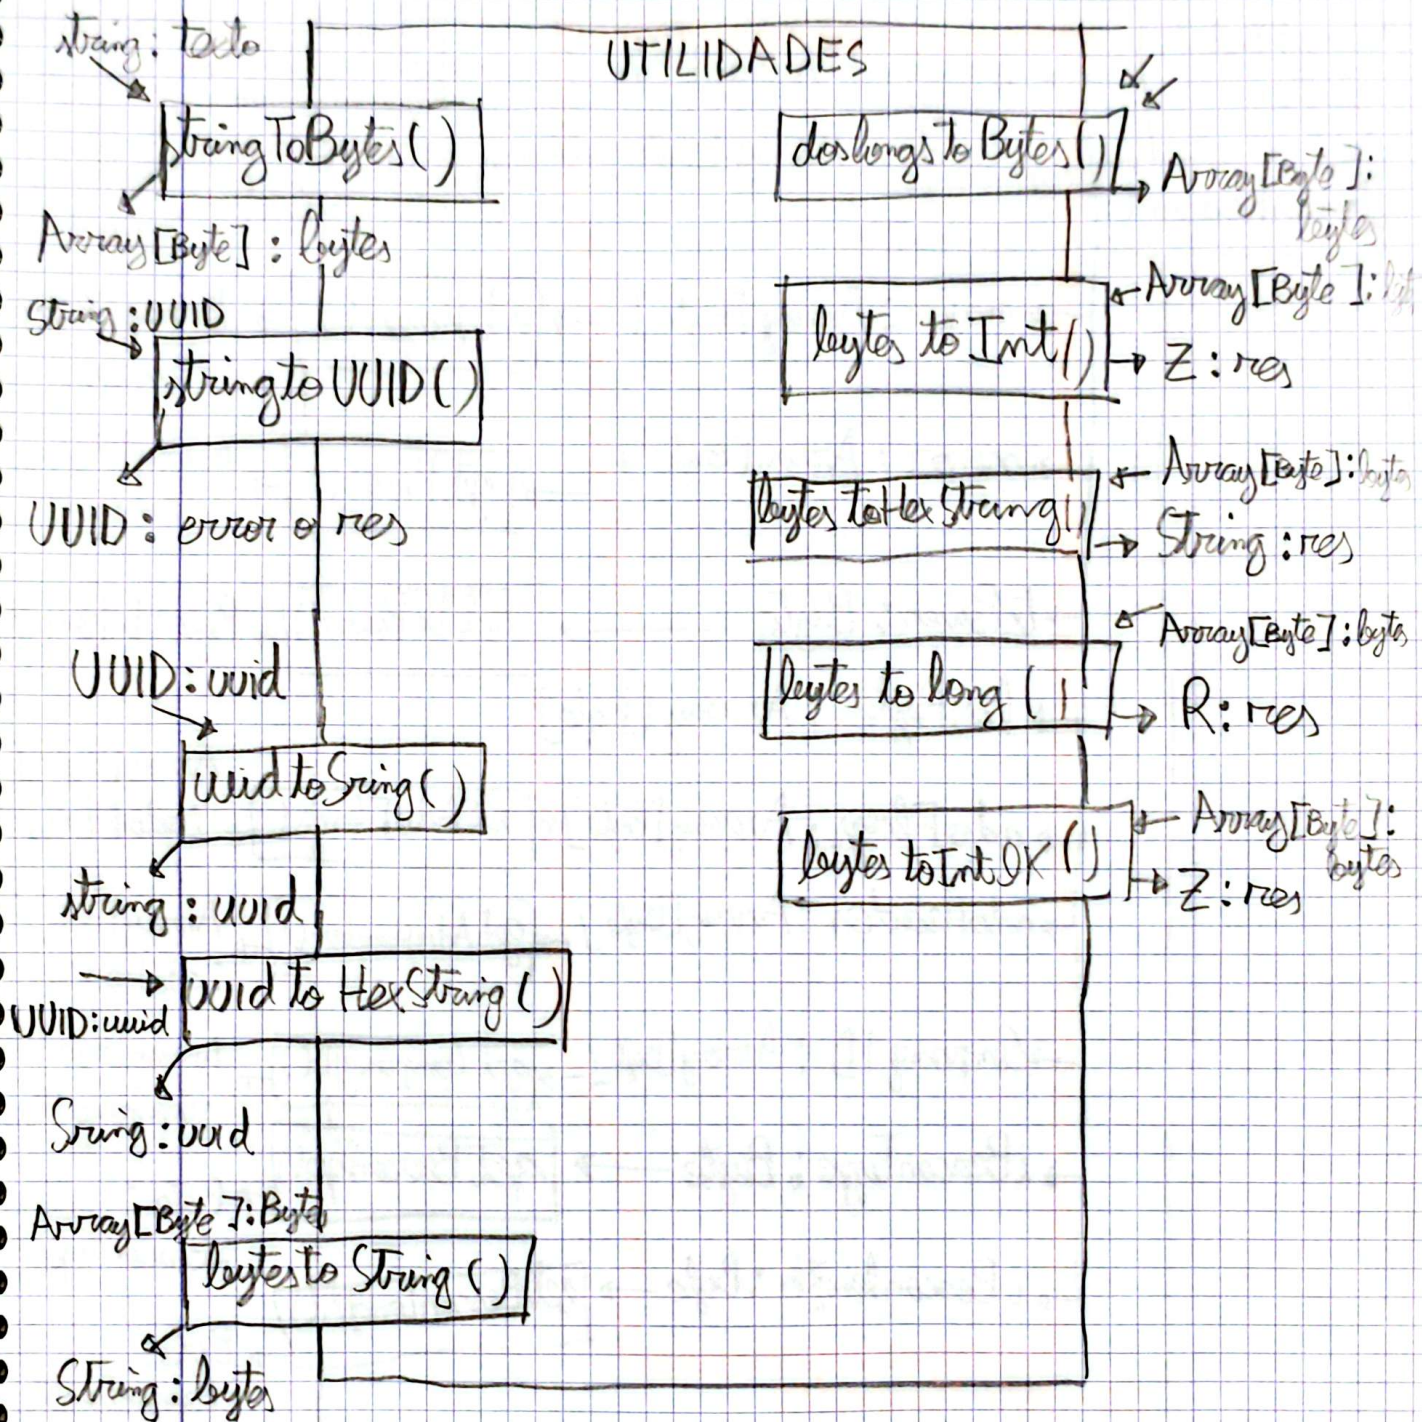 UTILIDADES
string: texto
stringToBytes()
Array[Byte]: bytes
String: UUID
string to UUID()
UUID: error o res
UUID: uuid
uuid to Sring()
string: uuid
uuid to HexString()
UUID: uuid
Sring: uuid
Array[Byte]: Bytes
bytes to String()
String: bytes
doslongs to Bytes()
Array[Byte]:
bytes
Array[Byte]:
bytes to Int()
Z: res
Array[Byte]: bytes
bytes to Hex String()
String: res
Array[Byte]: bytes
bytes to long()
R: res
Array[Byte]:
bytes
bytes to Int OK()
Z: res